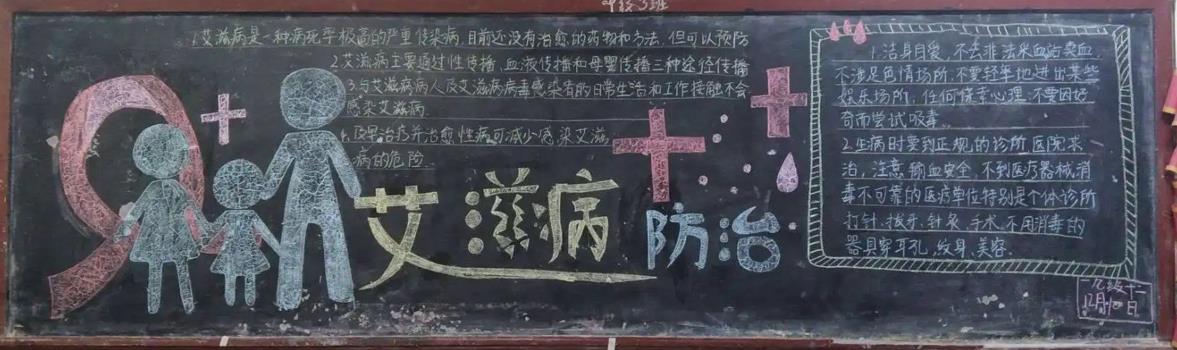 1.艾滋病是一种病死率极高的严重传染病,目前还没有治愈的药物和方法,但可以预防
2.艾滋病主要通过性传播,血液传播和母婴传播三种途径传播
3.与艾滋病病人及艾滋病病毒感染者的日常生活和工作接触不会
感染艾滋病
4.及早治疗并治愈性病可减少感染艾滋
病的危险
艾滋病
防治
1.洁身自爱,不去非法采血站卖血
不涉足色情场所,不要轻率地进出某些
娱乐场所,任何
心理,不要因好
奇而尝试吸毒
2.生病时要到正规的诊所,医院求
治,注意输血安全,不到医疗器械消
毒不可靠的医疗单位特别是个体诊所
打针,拔牙,针灸,手术,不用消毒的
器具穿耳孔,纹身,美容.